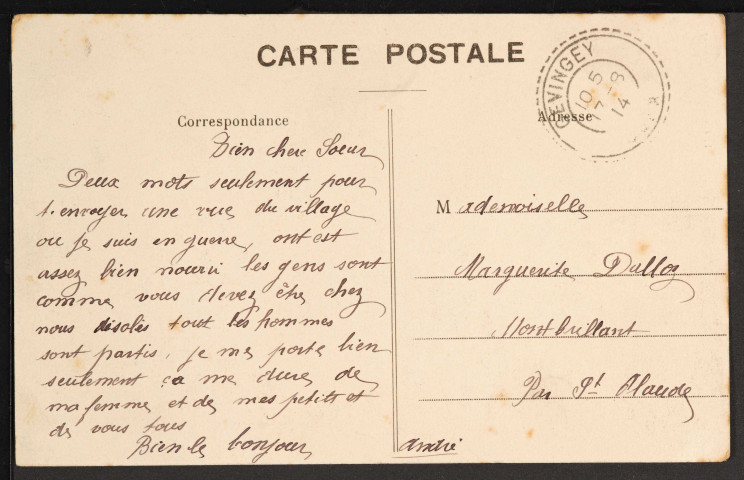 CARTE POSTALE
GEVINGEY
10 5
17 - 8
14
Correspondance
Adresse
Bien chere Soeur
Deux mots seulement pour
t.envoyer une vue du village
ou je suis en guerre, ont est
assez bien nourri les gens sont
comme vous devez être chez
nous disolés tout les hommes
sont partis. je me porte bien
seulement ça me dure de
ma femme et de mes petits et
de vous tous
Bien le bonjour
André
Mademoiselle
Marguerite Dalloz
Montbrillant
Par St Claude